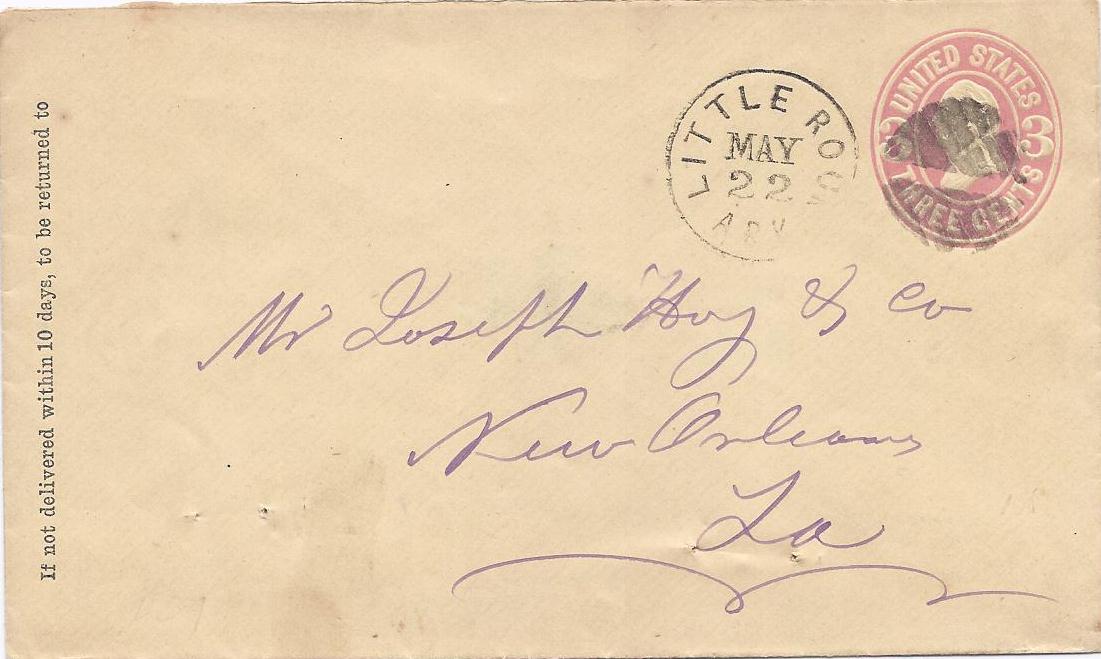 If not delivered within 10 days, to be returned to
UNITED STATES
3 3
THREE CENTS
LITTLE ROC
MAY
22
ARK
Mr Joseph Hoy & Co
New Orleans
La